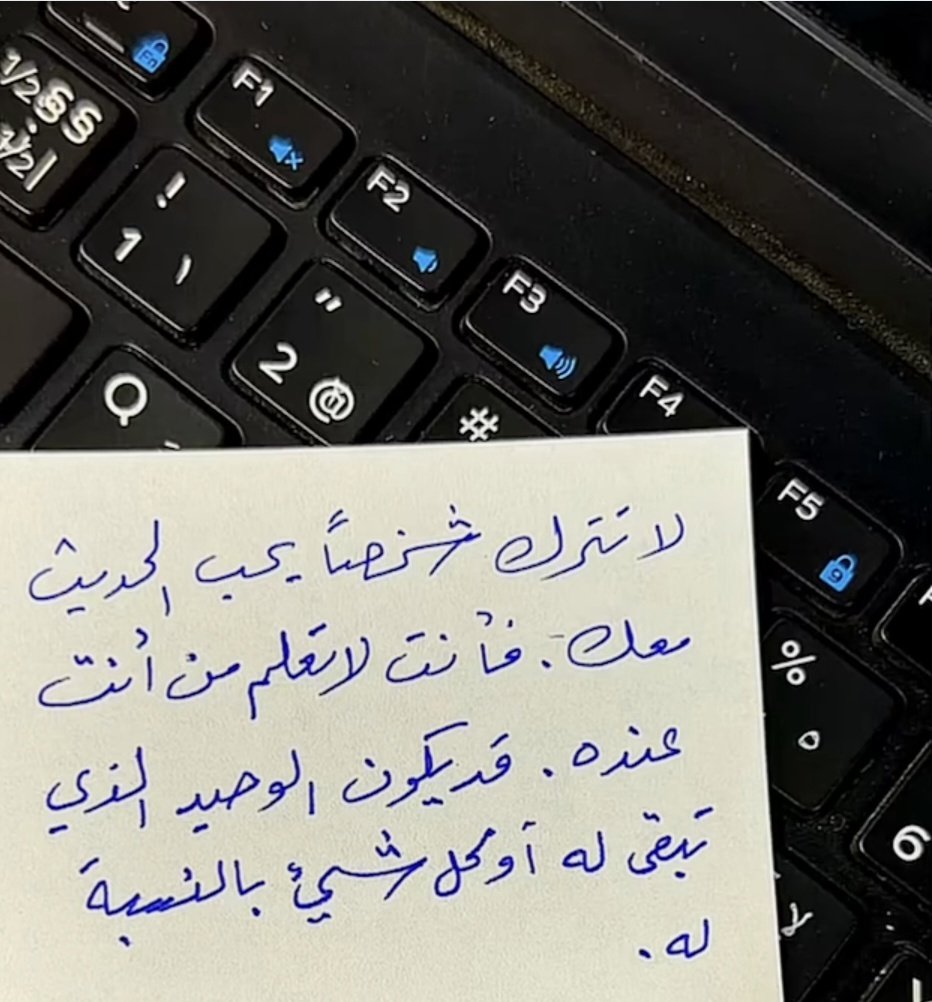 Fn
1/2 §§
1/2 |
F1
! 1 ١
F2
" 2 @
F3
Q
#
F4
F5
9
%
6
لا تترك شخصاً يحب الحديث
معك. فأنت لا تعلم من أنت
عنده. قد يكون الوحيد الذي
تبقى له أو كل شيئ بالنسبة
له.